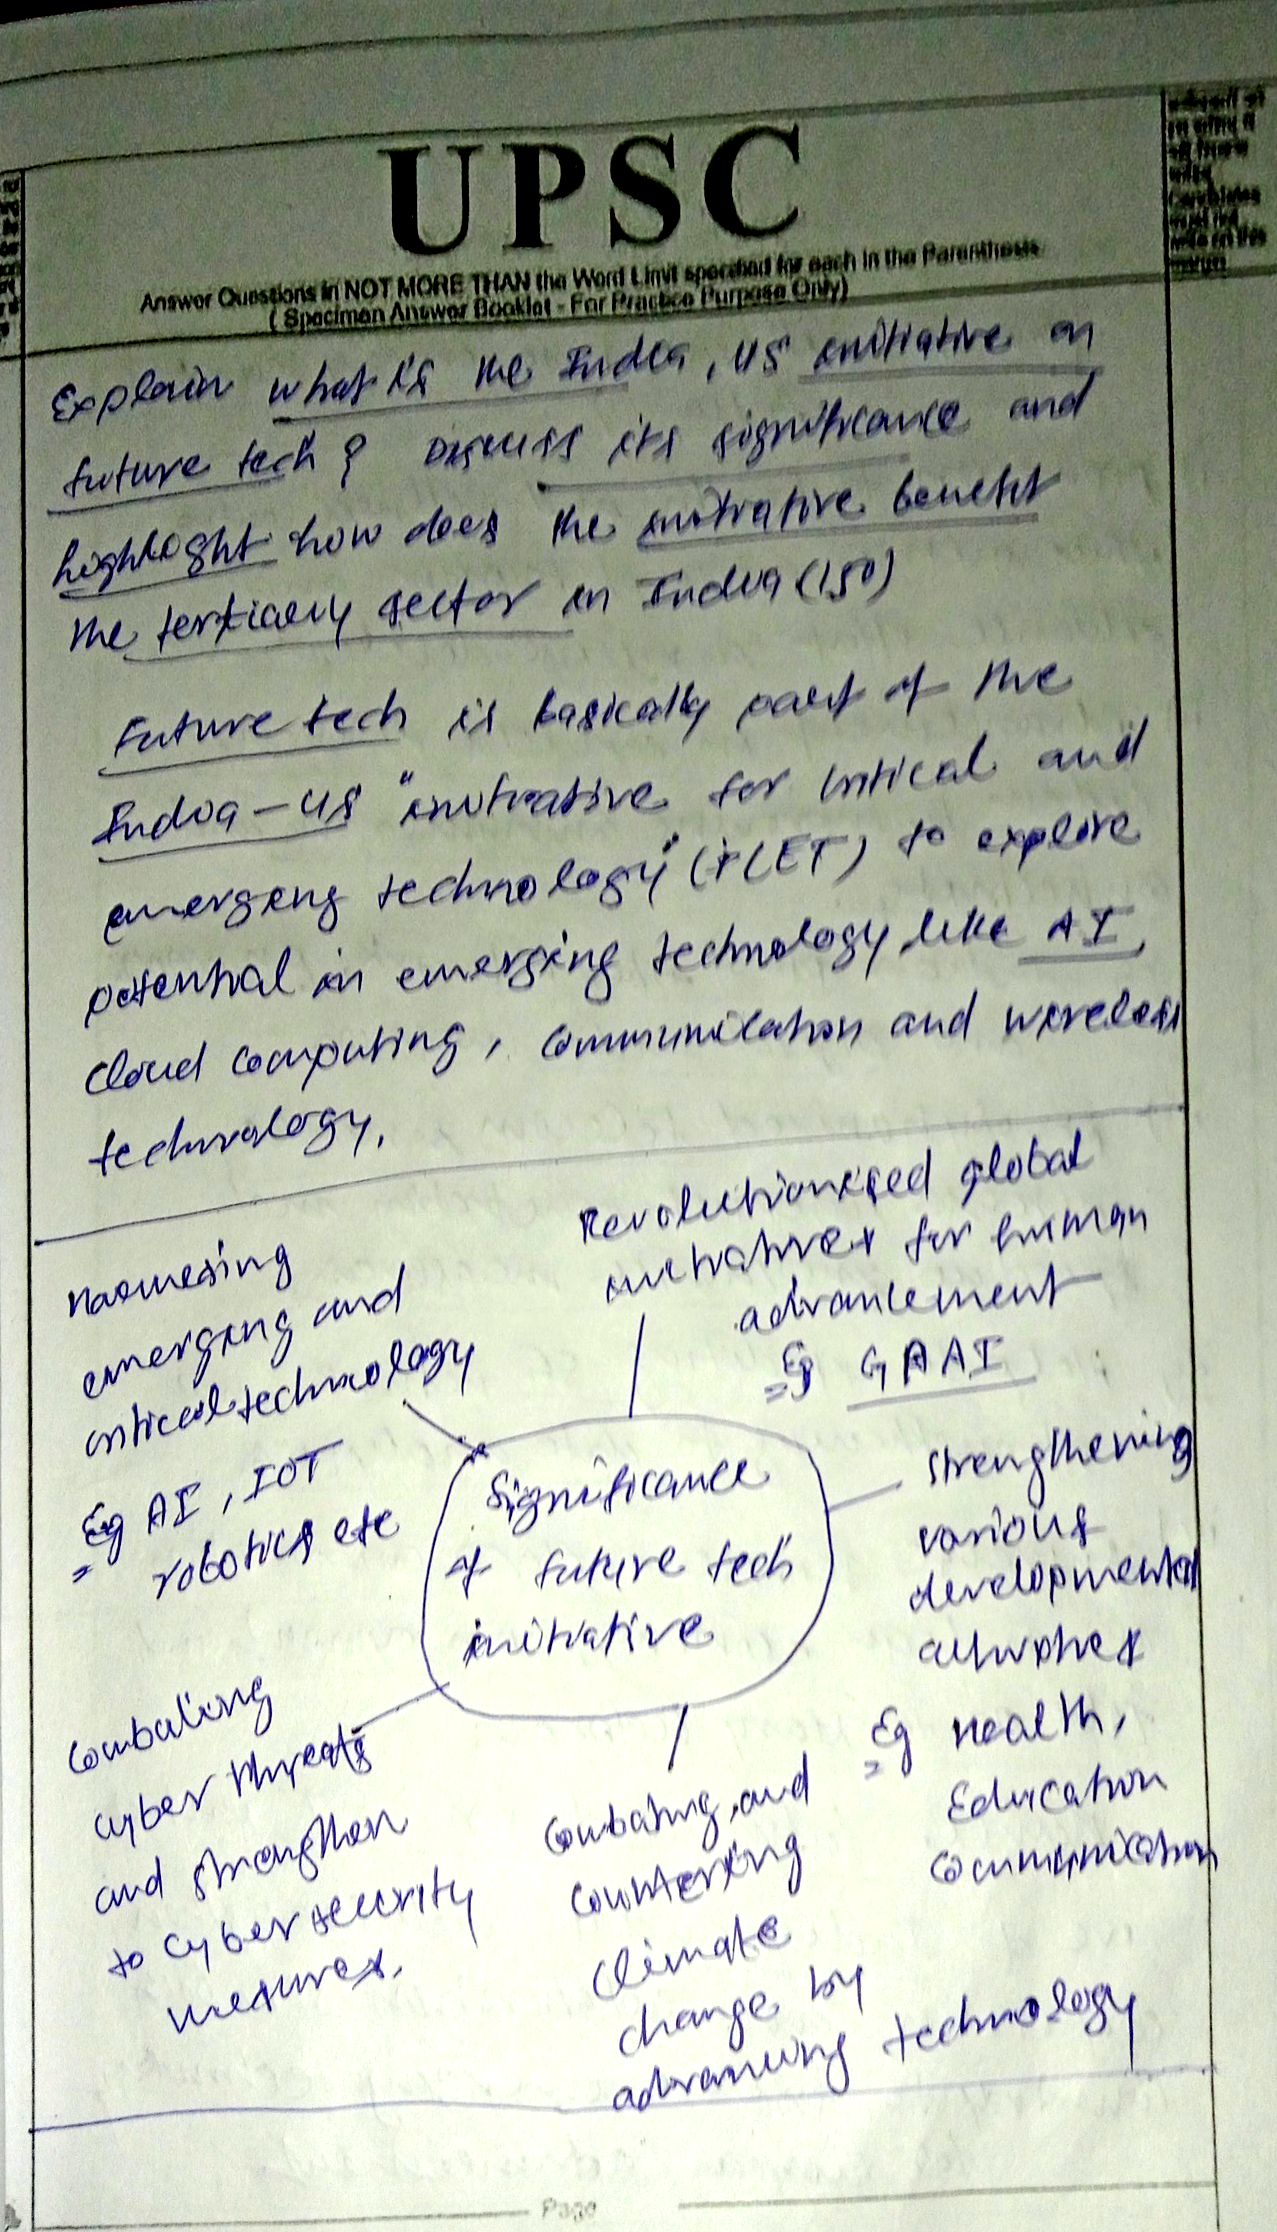 UPSC
Answer Questions in NOT MORE THAN the Word Limit specified for each in the Parenthesis
( Specimen Answer Booklet - For Practice Purpose Only)
Candidates
must not
write on this
margin
Explain what is the India, US initiative on
future tech? Discuss its significance and
highlight how does the initiative benefit
the tertiary sector in India (150)
Future tech is basically part of the
India-US "initiative for critical and
emerging technology" (iCET) to explore
potential in emerging technology like AI,
cloud computing, communication and wireless
technology.
Revolutionised global
initiatives for human
advancement
Eg GAAI
Harnessing
emerging and
critical technology
Eg AI, IOT
robotics etc
Significance
of future tech
initiative
strengthening
various
developmental
Eg Health,
Education
Communication
Combating
cyber threats
and strengthen
to cyber security
mesures.
Combating, and
countering
climate
change by
advancing technology
Page